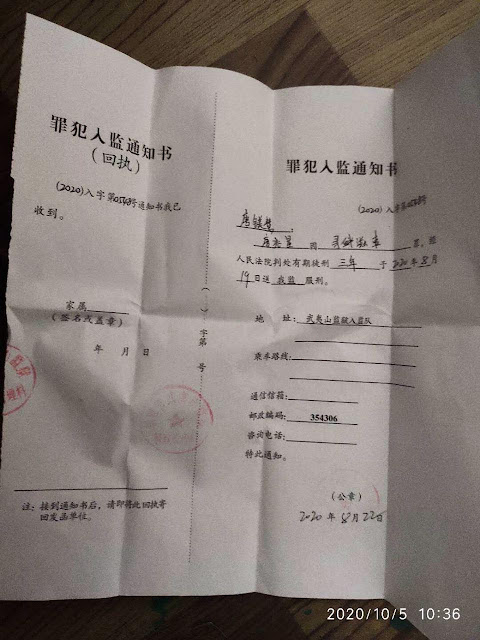 罪犯入监通知书
(回执)
(2020)入字第0548号通知书我已
收到。
家属
(签名或盖章)
年 月 日
注：接到通知书后，请即将此回执寄
回发函单位。
( )字第 号
罪犯入监通知书
(2020)入字第0548号
因 寻衅滋事 罪，经
人民法院判处有期徒刑 三年 于 2020年8月
19日送 我监 服刑。
地 址：武夷山监狱入监队
乘车路线：
通信信箱：
邮政编码：354306
咨询电话：
特此通知。
(公章)
2020年8月22日
2020/10/5 10:36